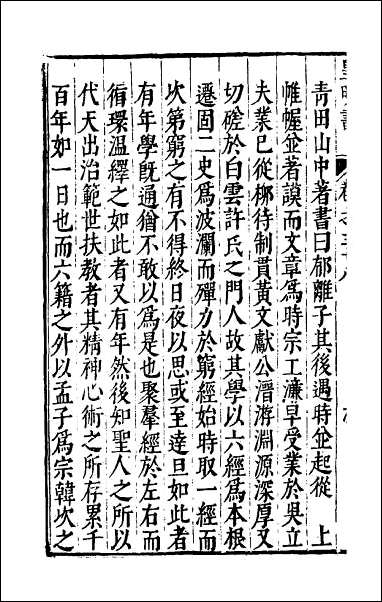 青田山中著書曰郁離子其後遇時企起從　上
帷幄企著謨而文章爲時宗工濂早受業於吳立
夫業巳從栁待制貫黃文獻公溍游淵源深厚又
切磋於白雲許氏之門人故其學以六經爲本根
遷固二史爲波瀾而殫力於窮經始時取一經而
次第窮之有不得終日夜以思或至達旦如此者
有年學旣通猶不敢以爲是也聚羣經於左右而
循環溫繹之如此者又有年然後知聖人之所以
代天出治範世扶教者其精神心術之所存累千
百年如一日也而六籍之外以孟子爲宗韓次之